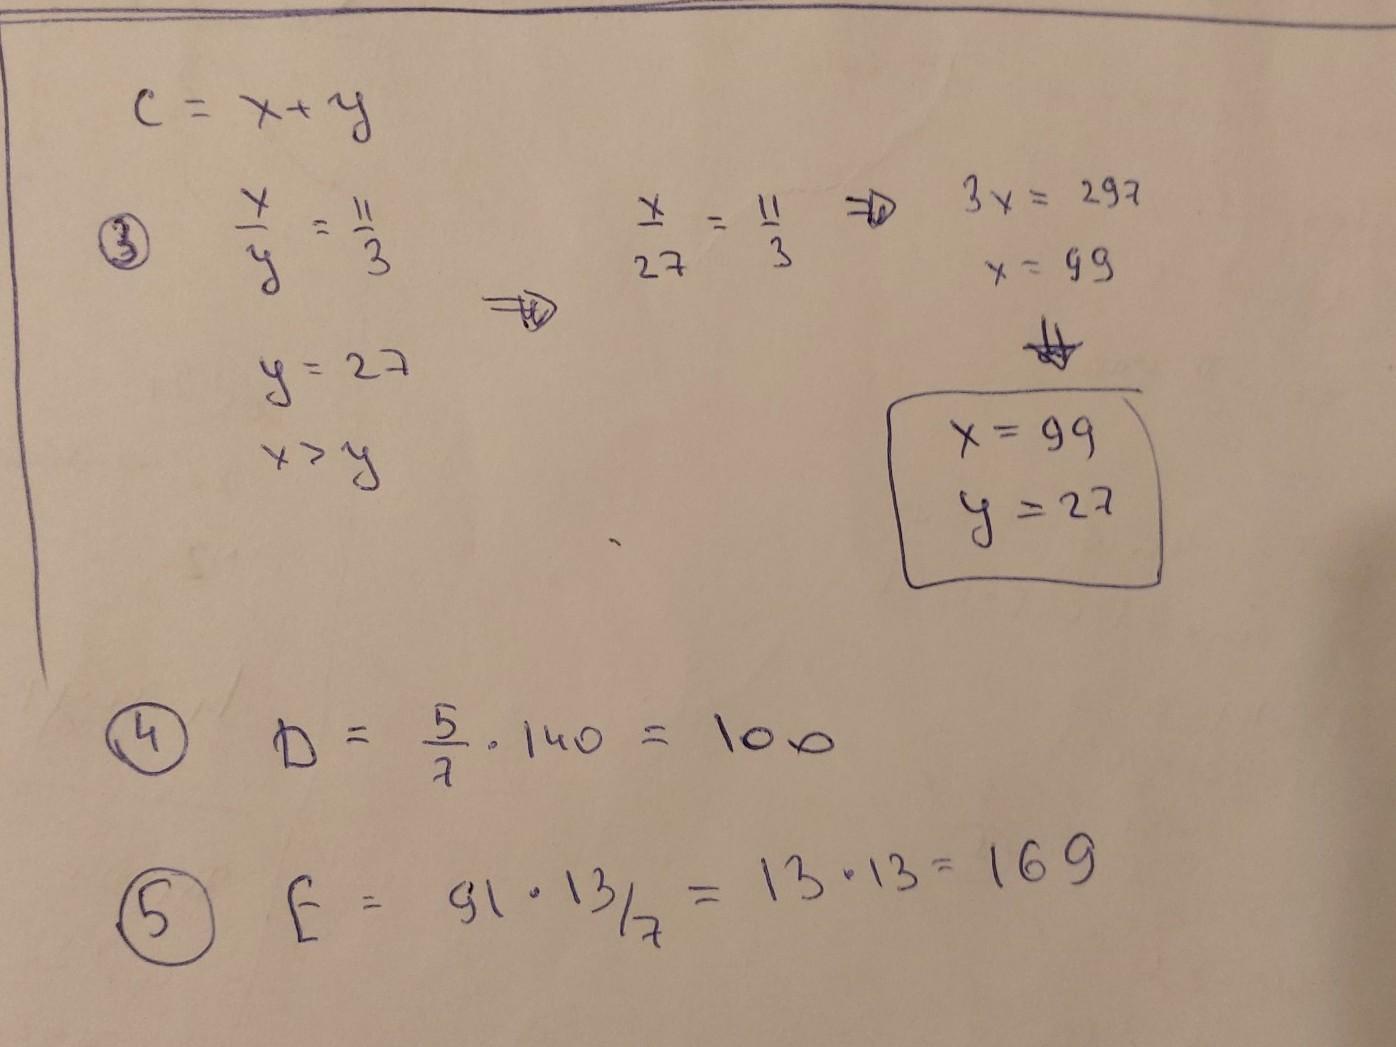 C = x + y
③ x/y = 11/3 ⇒ x/27 = 11/3 ⇒ 3x = 297
x = 99
⇓
y = 27
x > y
x = 99
y = 27
④ D = 5/7 · 140 = 100
⑤ E = 91 · 13/7 = 13 · 13 = 169